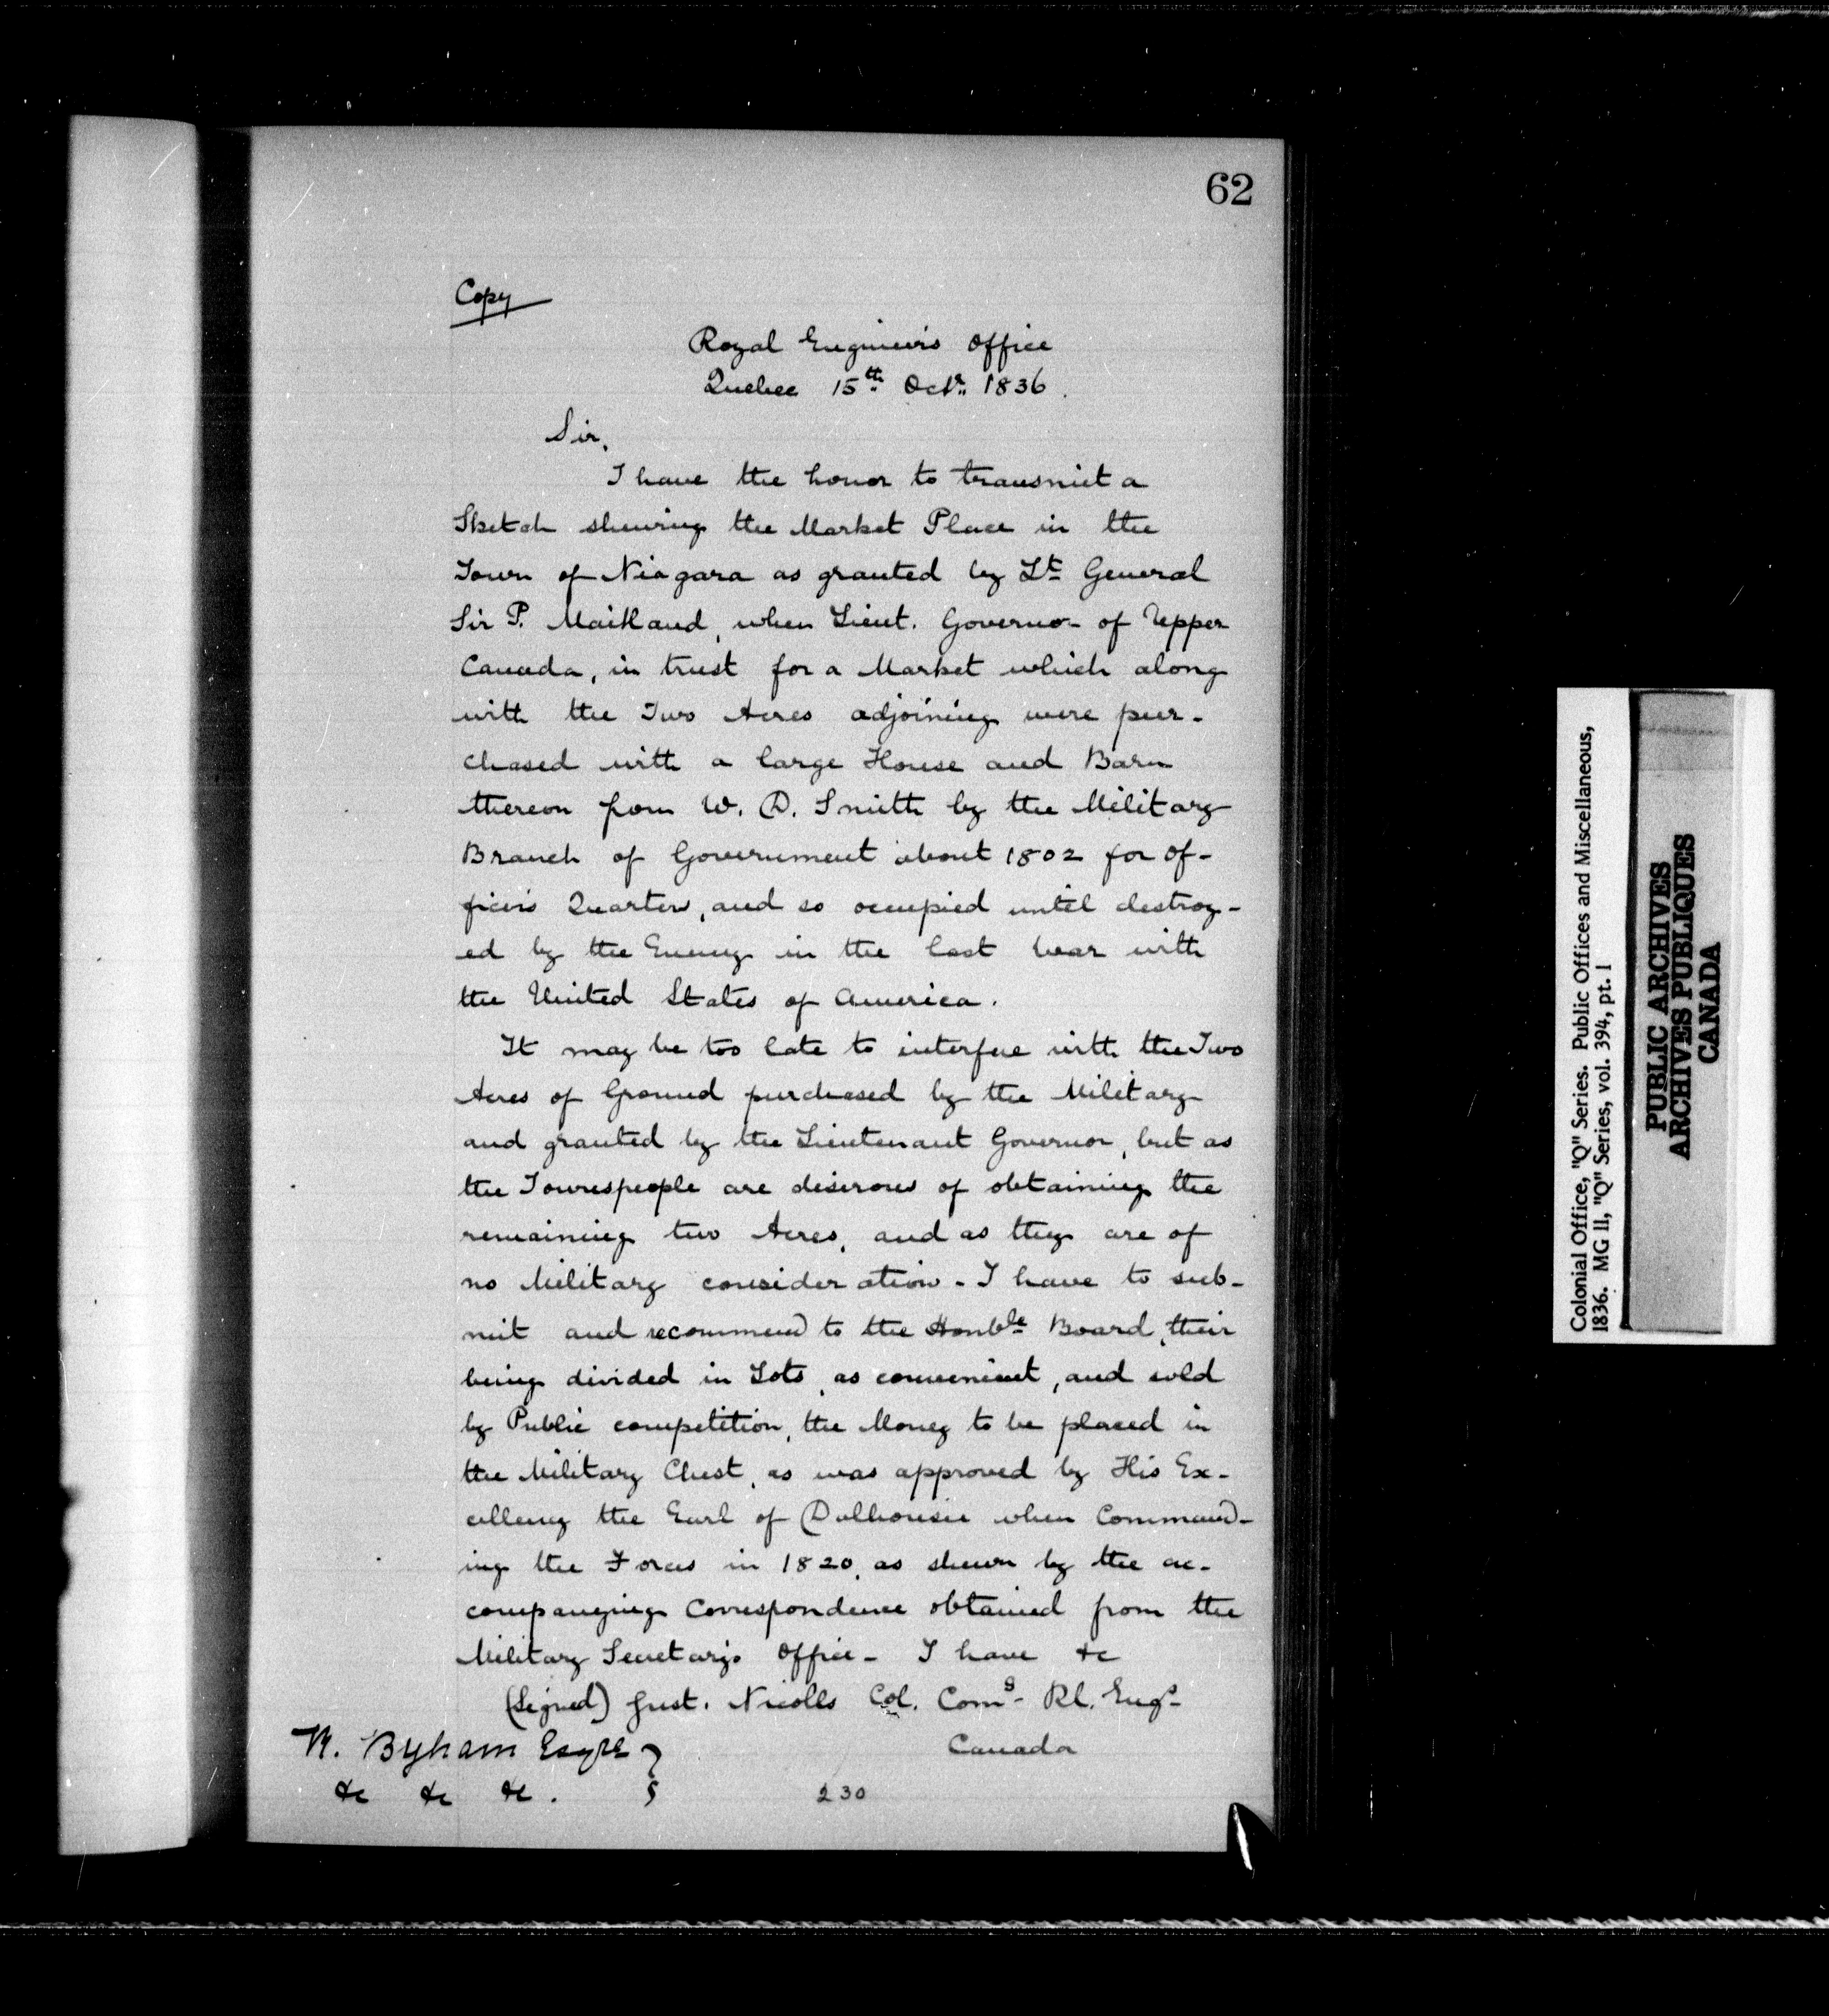 62
Copy
Royal Engineer's Office
Quebec 15th Octr. 1836.
Sir,
I have the honor to transmit a
Sketch shewing the Market Place in the
Town of Niagara as granted by Lt. General
Sir P. Maitland, when Lieut. Governor of Upper
Canada, in trust for a Market which along
with the Two Acres adjoining were pur-
chased with a large House and Barn
thereon from W. D. Smith by the Military
Branch of Government about 1802 for Of-
ficers Quarters, and so occupied until destroy-
ed by the Enemy in the last War with
the United States of America.
It may be too late to interfere with the Two
Acres of Ground purchased by the Military
and granted by the Lieutenant Governor, but as
the Townspeople are desirous of obtaining the
remaining two Acres, and as they are of
no Military consideration - I have to sub-
mit and recommend to the Honble Board, their
being divided in Lots, as convenient, and sold
by Public competition, the Money to be placed in
the Military Chest, as was approved by His Ex-
cellency the Earl of Dalhousie when Command-
ing the Forces in 1820, as shewn by the ac-
companying Correspondence obtained from the
Military Secretary's Office - I have &c
(Signed) Gust. Nicolls Col. Comg. Rl. Engs.
Canada
R. Byham Esqre
&c &c &c.
230
Colonial Office, "Q" Series. Public Offices and Miscellaneous,
1836. MG 11, "Q" Series, vol. 394, pt. 1
PUBLIC ARCHIVES
ARCHIVES PUBLIQUES
CANADA